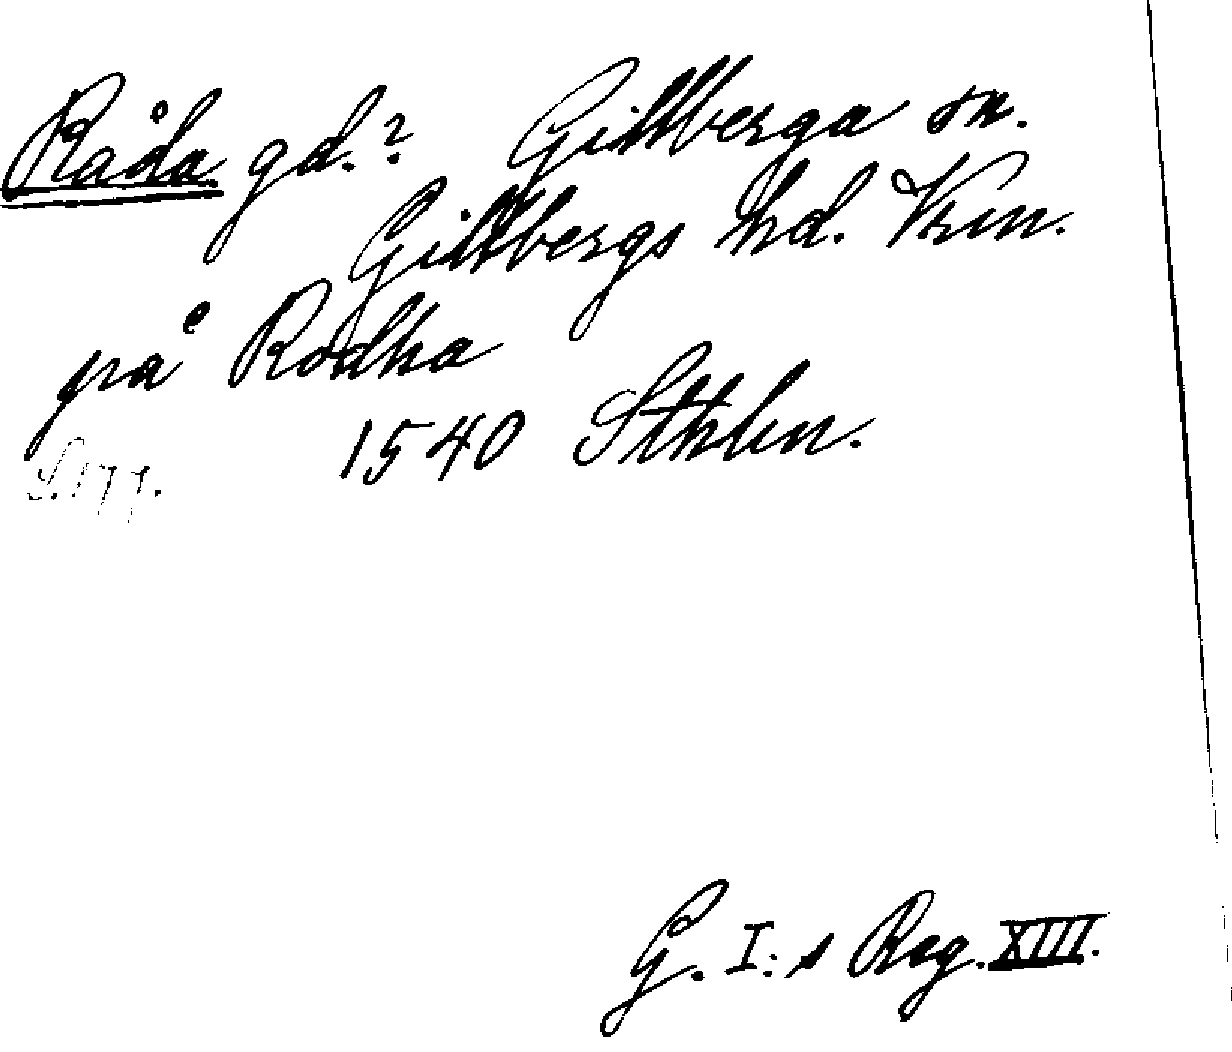 Råda gd.? Gillberga sn.
Gillbergs hd. Vrm.
på Rodha
1540 Sthlm.
S. 177.
G. I:s Reg. XIII.